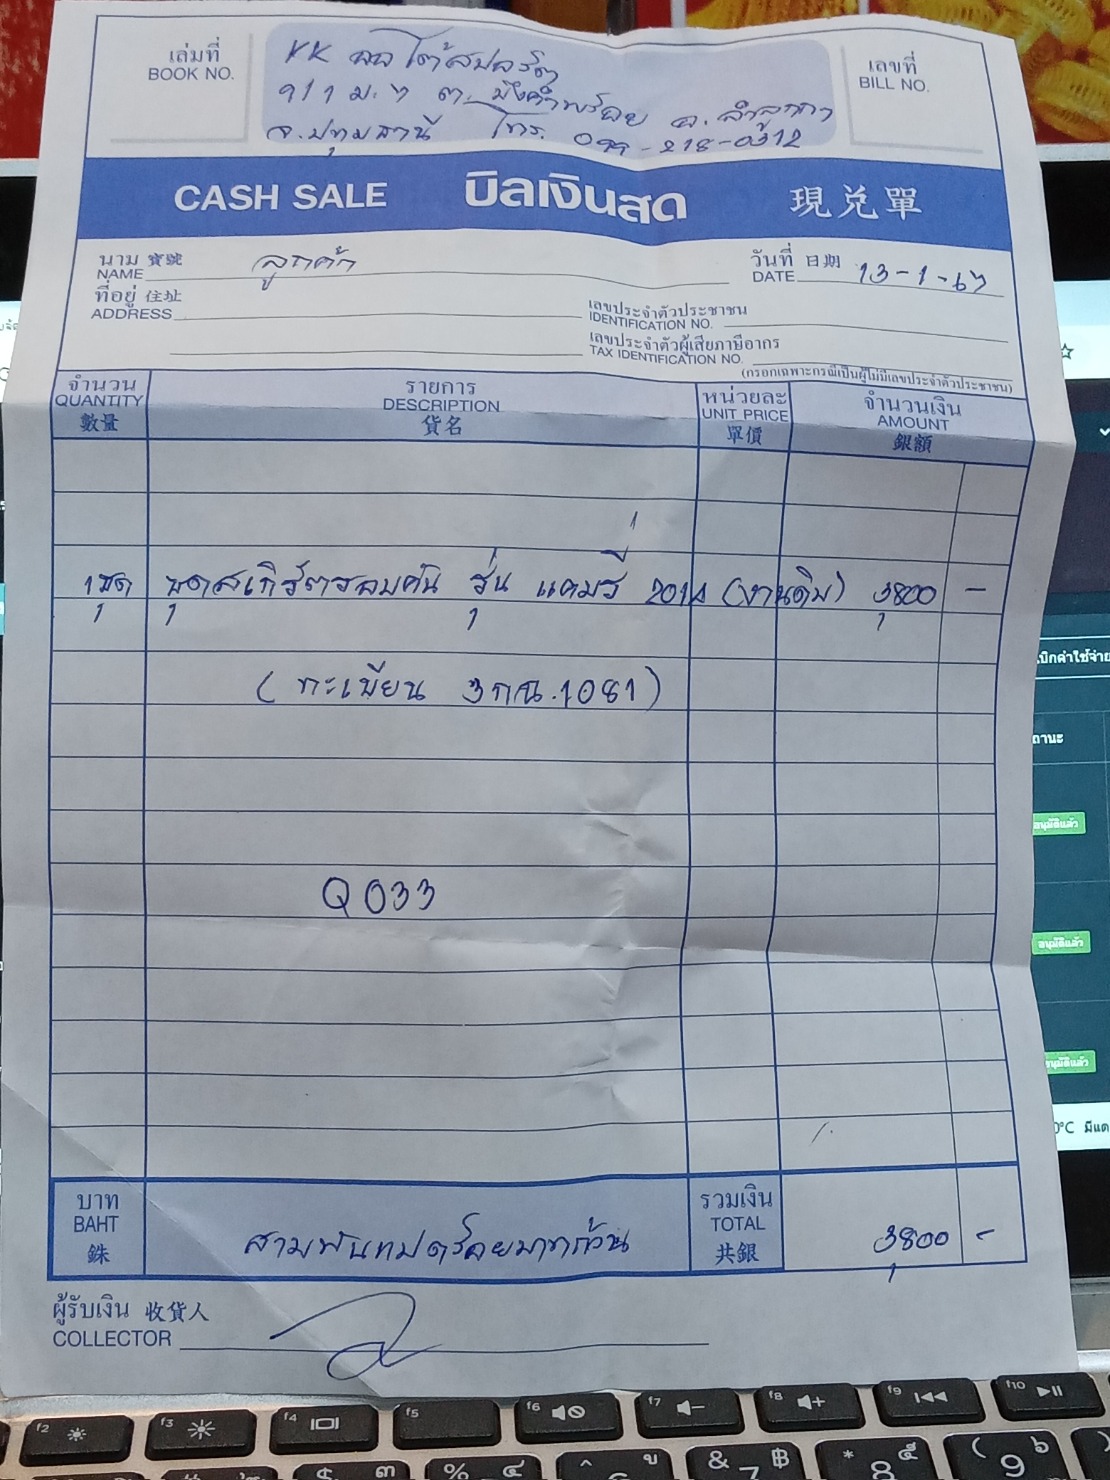 เล่มที่
BOOK NO.
KK ออโต้สปอร์ต
91 ม.7 ต. บึงคำพร้อย อ. ลำลูกกา
จ.ปทุมธานี โทร. 099-218-0312
เลขที่
BILL NO.
CASH SALE บิลเงินสด 現兌單
นาม 寶號
NAME ลูกค้า
วันที่ 日期
DATE 13-1-67
ที่อยู่ 住址
ADDRESS
เลขประจำตัวประชาชน
IDENTIFICATION NO.
เลขประจำตัวผู้เสียภาษีอากร
TAX IDENTIFICATION NO.
(กรอกเฉพาะกรณีเป็นผู้ไม่มีเลขประจำตัวประชาชน)
จำนวน
QUANTITY
數量
รายการ
DESCRIPTION
貨名
หน่วยละ
UNIT PRICE
單價
จำนวนเงิน
AMOUNT
銀額
1ชุด ชุดสเกิร์ตรอบคัน รุ่น แคมรี่ 2014 (งานดิบ) 3,800 -
(ทะเบียน 3กฉ.1081)
Q033
บาท
BAHT
銖
สามพันแปดร้อยบาทถ้วน
รวมเงิน
TOTAL
共銀
3,800 -
ผู้รับเงิน 收貨人
COLLECTOR
เบิกค่าใช้จ่าย
ถานะ
อนุมัติแล้ว
อนุมัติแล้ว
อนุมัติแล้ว
0°C มีแด
f2
f3
f4
f5
f6
f7
f8
f9
f10
$ ๓
% ๔
^ ู
& ฿
7
* ๕
8
( ๖
9